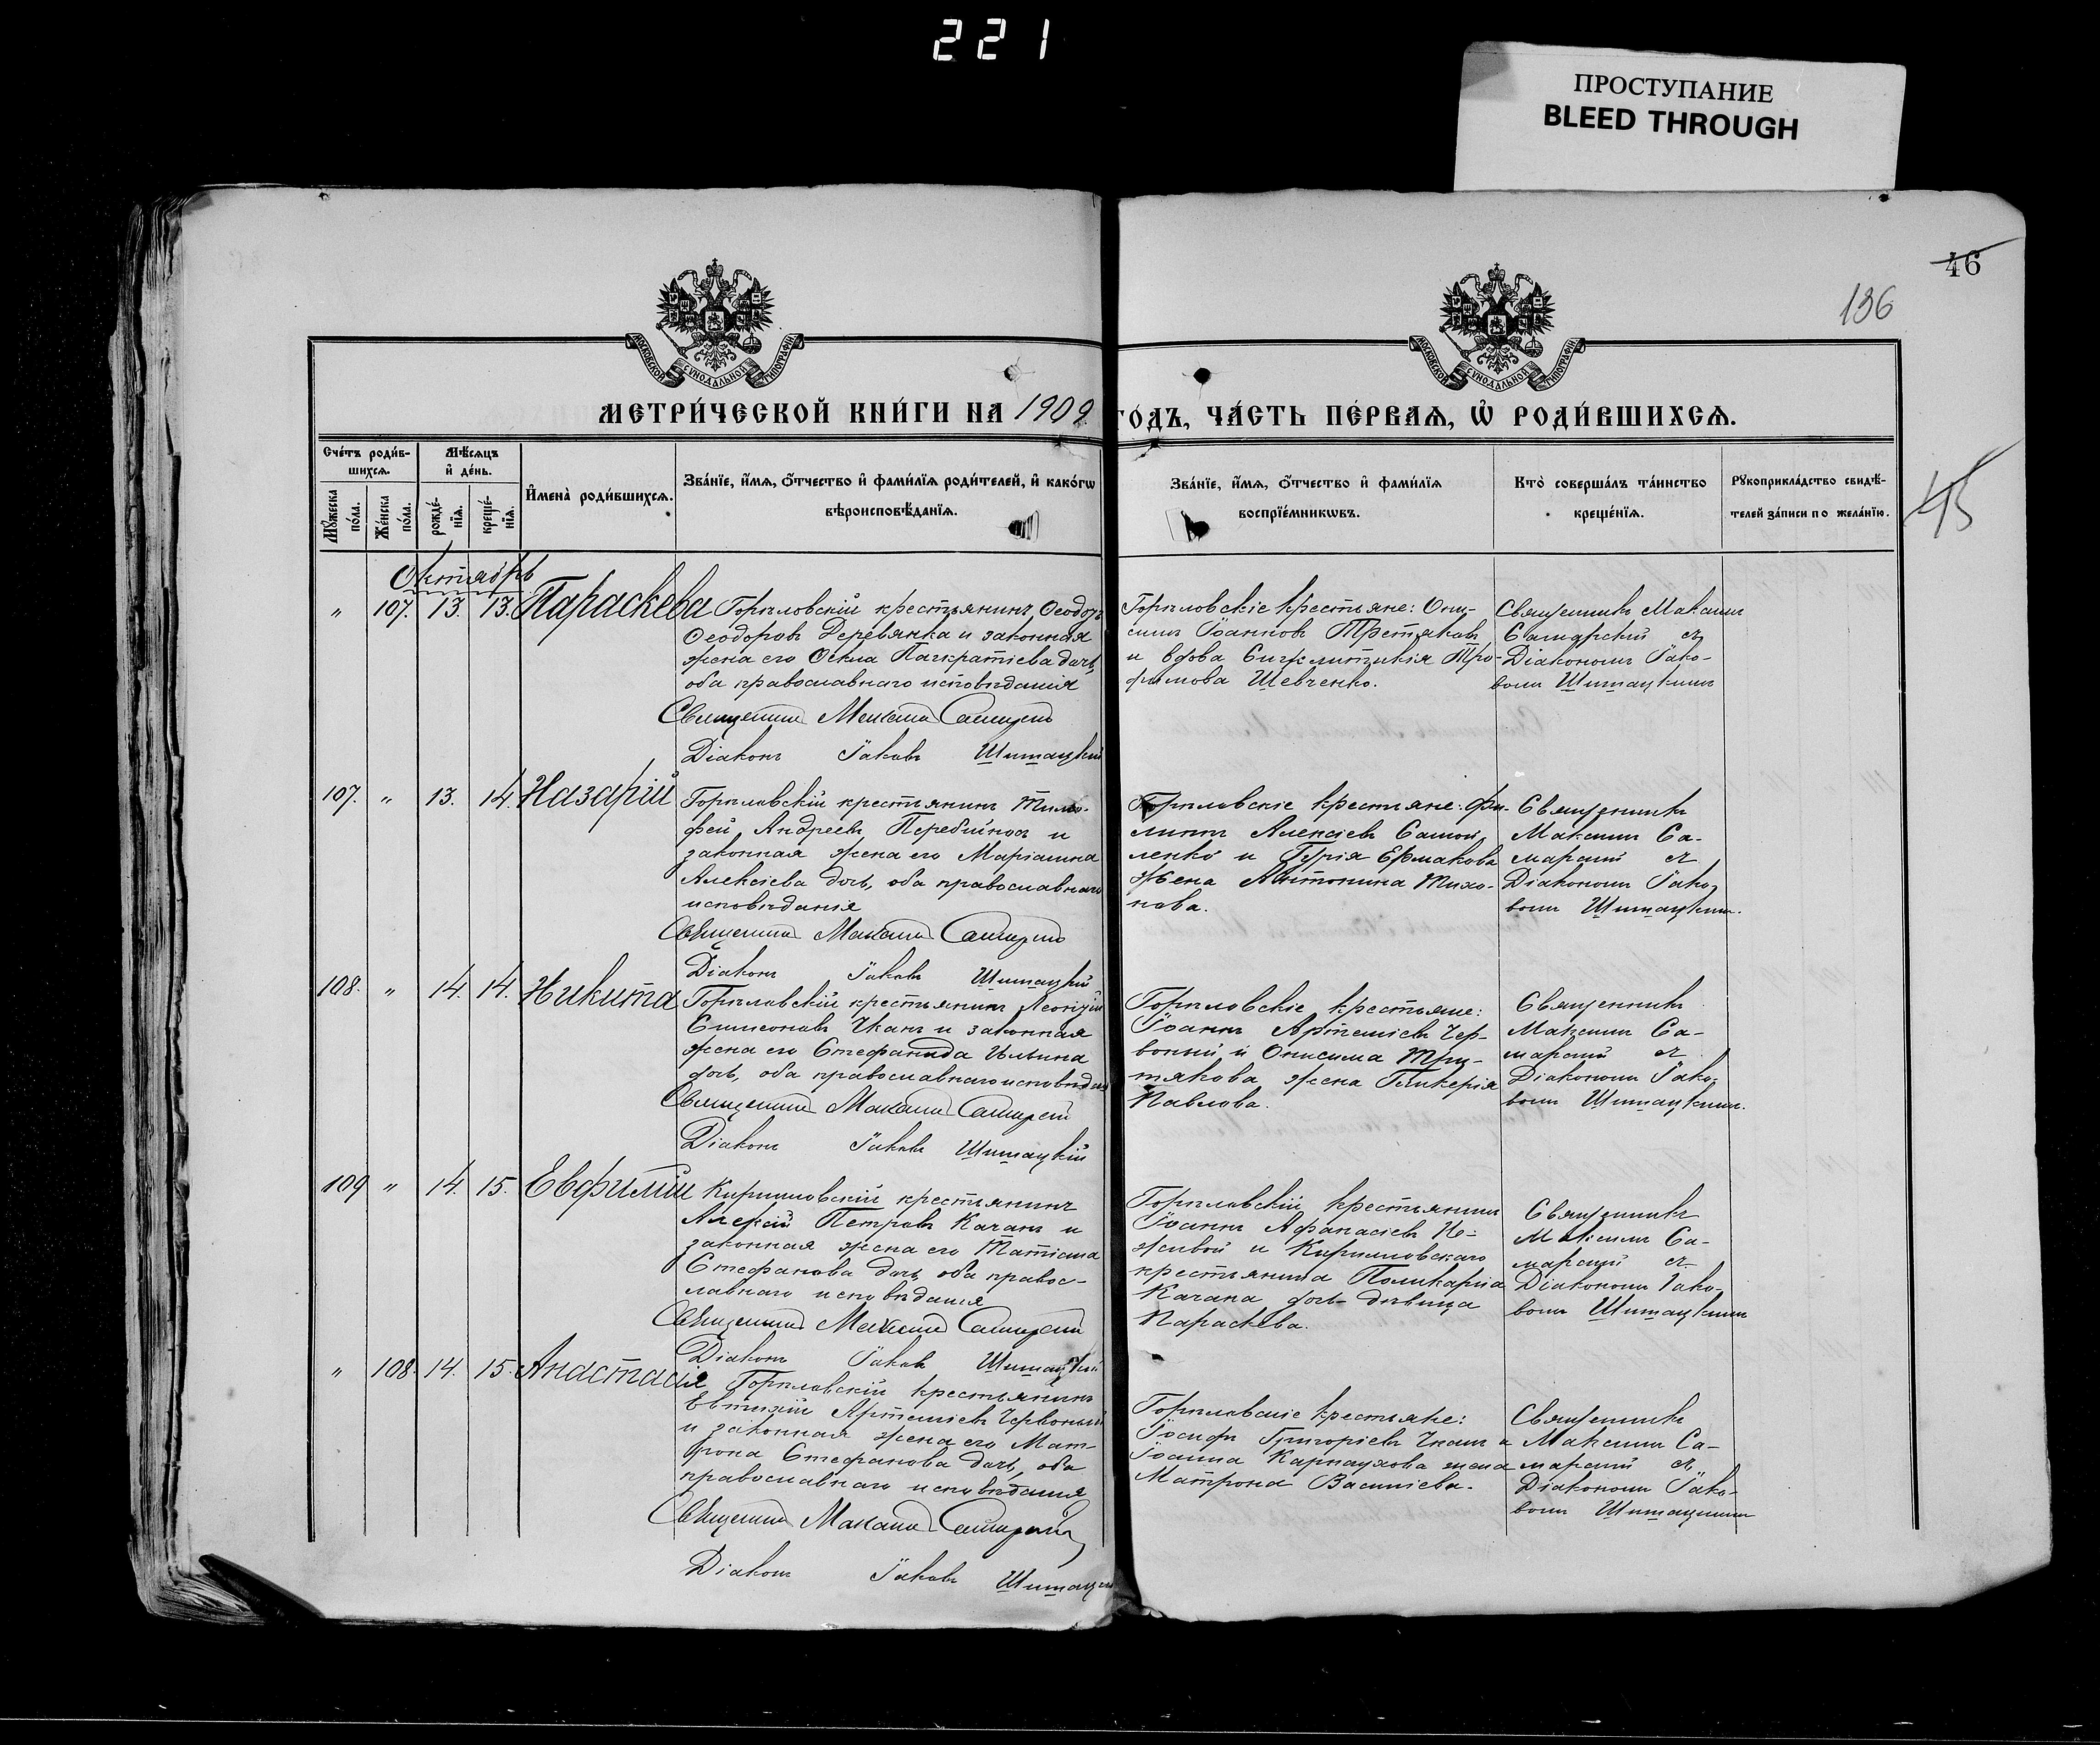 221
ПРОСТУПАНИЕ
BLEED THROUGH
46
136
45
МОСКОВСКОЙ СѴНОДАЛЬНОЙ ТИПОГРАФІИ
МОСКОВСКОЙ СѴНОДАЛЬНОЙ ТИПОГРАФІИ
МЕТРИ́ЧЕСКОЙ КНИ́ГИ НА 1909 ГО́ДЪ, ЧА́СТЬ ПЕ́РВАѦ, Ѡ҆ РОДИ́ВШИХСѦ.
Сче́тъ роди́в-
шихсѧ.
Мѣ́сѧцъ
и҆ де́нь.
Мꙋ́жеска
по́ла.
Же́нска
по́ла.
рожде́-
нїѧ.
креще́-
нїѧ.
И҆мена̀ роди́вшихсѧ.
Зва́нїе, и҆́мѧ, ѻ҆́тчество и҆ фами́лїѧ роди́телей, и҆ како́гѡ
вѣроисповѣ́данїѧ.
Зва́нїе, и҆́мѧ, ѻ҆́тчество и҆ фами́лїѧ
воспрїе́мникѡвъ.
Кто̀ соверша́лъ та́инство
креще́нїѧ.
Рꙋкоприкла́дство свидѣ́-
телей за́писи по жела́нїю.
Октябрь
„ 107. 13. 13. Параскева
Горѣловскій крестьянинъ Ѳеодоръ
Ѳеодоровъ Деревянка и законная
жена его Ѳекла Панкратіева дочь,
оба православнаго исповѣданія
Священникъ Максимъ Самарскій
Діаконъ Іаковъ Шишацкій
Горѣловскіе крестьяне: Они-
симъ Іоанновъ Третяковъ
и вдова Синклитикія Тро-
фимова Шевченко.
Священникъ Максимъ
Самарскій съ
Діакономъ Іако-
вомъ Шишацкимъ
107. „ 13. 14. Назарій
Горѣловскій крестьянинъ Тимо-
фей Андреевъ Перебийносъ и
законная жена его Маріамна
Алексіева дочь, оба православнаго
исповѣданія
Священникъ Максимъ Самарскій
Діаконъ Іаковъ Шишацкій
Горѣловскіе крестьяне: Фи-
липпъ Алексіевъ Самой-
ленко и Гурія Ермакова
жена Антонина Тихо-
нова.
Священникъ
Максимъ Са-
марскій съ
Діакономъ Іако-
вомъ Шишацкимъ.
108. „ 14. 14. Никита
Горѣловскій крестьянинъ Георгій
Симеоновъ Чканъ и законная
жена его Стефанида Ильина
дочь, оба православнаго исповѣданія
Священникъ Максимъ Самарскій
Діаконъ Іаковъ Шишацкій
Горѣловскіе крестьяне:
Іоаннъ Артеміевъ Чер-
воный и Онисима Тре-
тякова жена Гликерія
Павлова.
Священникъ
Максимъ Са-
марскій съ
Діакономъ Іако-
вомъ Шишацкимъ.
109 „ 14. 15. Евфимій
Кирилловскій крестьянинъ
Алексій Петровъ Качанъ и
законная жена его Татіана
Стефанова дочь, оба правос-
лавнаго исповѣданія
Священникъ Максимъ Самарскій
Діаконъ Іаковъ Шишацкій
Горѣловскій крестьянинъ
Іоаннъ Афанасіевъ Не-
живой и Кирилловскаго
крестьянина Поликарпа
Качана дочь-дѣвица
Параскева.
Священникъ
Максимъ Са-
марскій съ
Діакономъ Іако-
вомъ Шишацкимъ
„ 108. 14. 15. Анастасія
Горѣловскій крестьянинъ
Евтихій Артеміевъ Червоный
и законная жена его Мат-
рона Стефанова дочь, оба
православнаго исповѣданія
Священникъ Максимъ Самарскій
Діаконъ Іаковъ Шишацкій
Горѣловскіе крестьяне:
Іосифъ Григоріевъ Чканъ и
Іоанна Карнаухова жена
Матрона Василіева.
Священникъ
Максимъ Са-
марскій съ
Діакономъ Іако-
вомъ Шишацкимъ